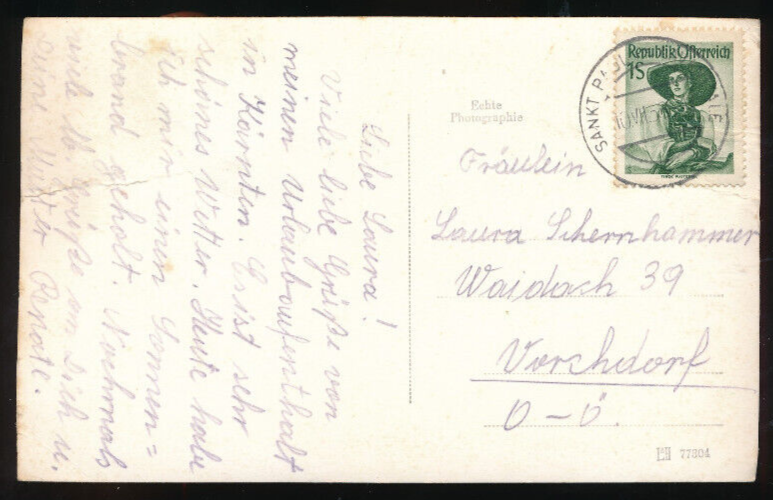 Liebe Laura!
Viele liebe Grüße von
meinen Urlaubaufenthalt
in Kärnten. Es ist sehr
schönes Wetter. Heute habe
ich mir einen Sonnen=
brand geholt. Nochmals
viele lb. Grüße an Dich u.
Deine Mutter Renate.
Echte
Photographie
Republik Österreich
1S
SANKT
Fräulein
Laura Schernhammer
Waidach 39
Vorchdorf
O-Ö.
77304